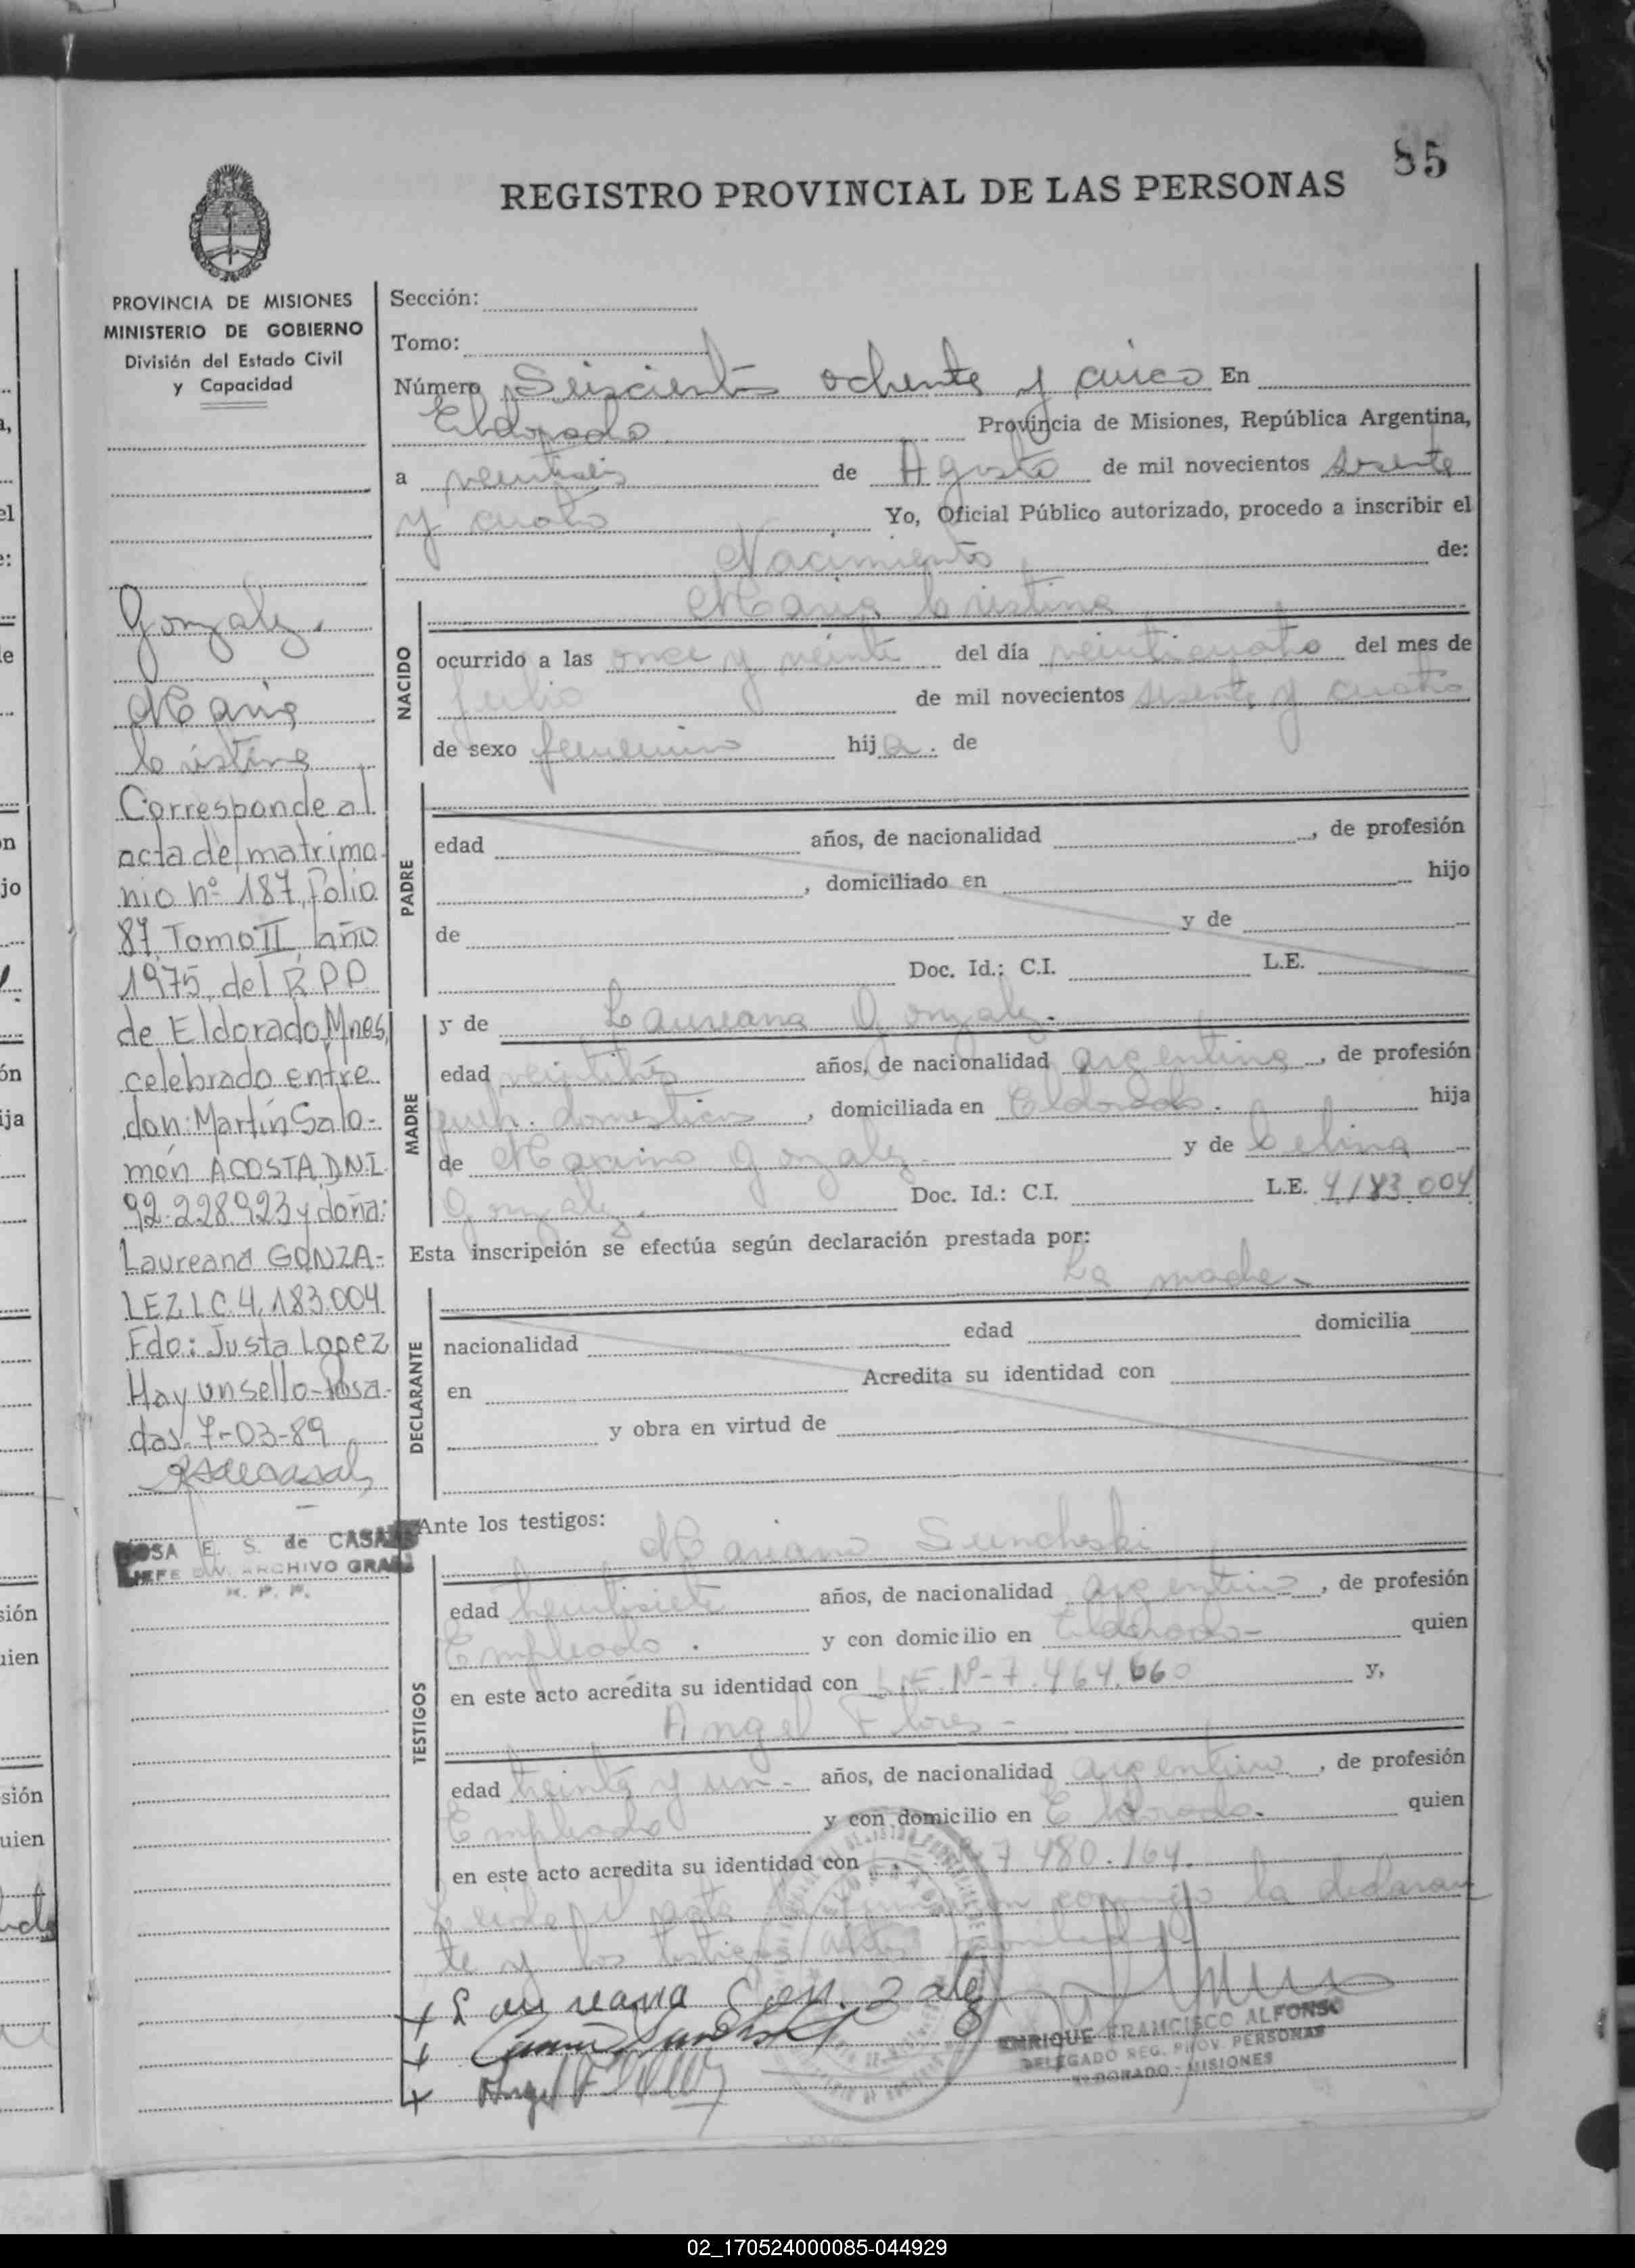 85
REGISTRO PROVINCIAL DE LAS PERSONAS
PROVINCIA DE MISIONES
MINISTERIO DE GOBIERNO
División del Estado Civil
y Capacidad
Gonzalez.
Maria
Cristina
Corresponde al
acta de matrimo-
nio nº 187, Folio
87, Tomo II, año
1975, del R.P.P.
de Eldorado, Mnes,
celebrado entre
don: Martín Salo-
món ACOSTA D.N.I.
92.228.923 y doña:
Laureana GONZA-
LEZ L.C. 4.183.004
Fdo: Justa Lopez
Hay un sello - Posa-
das, 7-03-89
ROSA E. S. de CASA
JEFE DIV. ARCHIVO GRAL
R. P. P.
Sección:
Tomo:
Número Seiscientos ochenta y cinco En
Eldorado Provincia de Misiones, República Argentina,
a veintiseis de Agosto de mil novecientos sesenta
y cuatro Yo, Oficial Público autorizado, procedo a inscribir el
Nacimiento de:
NACIDO
Maria Cristina
ocurrido a las once y veinte del día veinticuatro del mes de
Julio de mil novecientos sesenta y cuatro
de sexo femenino hija. de
PADRE
edad años, de nacionalidad , de profesión
, domiciliado en hijo
de y de
Doc. Id.: C.I. L.E.
MADRE
y de Laureana Gonzalez.
edad veintitrés años, de nacionalidad argentina, de profesión
queh. domesticos, domiciliada en Eldorado. hija
de Maximo Gonzalez y de Celina
Gonzalez. Doc. Id.: C.I. L.E. 4183.004
Esta inscripción se efectúa según declaración prestada por:
La madre.
DECLARANTE
nacionalidad edad domicilia
en Acredita su identidad con
y obra en virtud de
Ante los testigos:
TESTIGOS
Mariano
edad años, de nacionalidad argentino, de profesión
Empleado. y con domicilio en Eldorado- quien
en este acto acredita su identidad con L.E. Nº-7.464.660 y,
Angel Flores-
edad treinta y un- años, de nacionalidad argentino, de profesión
Empleado y con domicilio en Eldorado. quien
en este acto acredita su identidad con 7.480.164.
Leida el acta la firman conmigo la declaran
te y los testigos
+ Laureana Gonzalez
+
+ Angel Flores
ENRIQUE FRANCISCO ALFONSO
DELEGADO REG. PROV. PERSONAS
ELDORADO - MISIONES
02_170524000085-044929